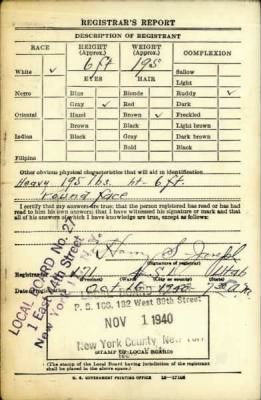 REGISTRAR'S REPORT
DESCRIPTION OF REGISTRANT
RACE HEIGHT (Approx.) WEIGHT (Approx.) COMPLEXION
6 ft 195
White ✓ EYES HAIR Sallow
Light
Negro Blue Blonde Ruddy ✓
Gray ✓ Red Dark
Oriental Hazel Brown ✓ Freckled
Brown Black Light brown
Indian Black Gray Dark brown
Bald Black
Filipino
Other obvious physical characteristics that will aid in identification
Heavy 195 lbs. ht- 6 ft.
round face
I certify that my answers are true; that the person registered has read or has had
read to him his own answers; that I have witnessed his signature or mark and that
all of his answers of which I have knowledge are true, except as follows:
LOCAL BOARD No. 25
1 East 44th Street
New York
(Signature of registrar)
Registrar for
Oct 16 1940
P. S. 166, 132 West 89th Street
NOV 1 1940
New York County, New York
(STAMP OF LOCAL BOARD)
(The stamp of the Local Board having jurisdiction of the registrant shall be placed in the above space.)
U. S. GOVERNMENT PRINTING OFFICE